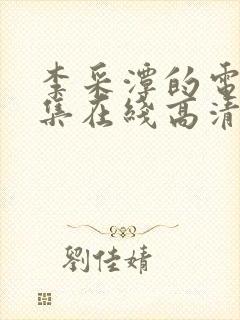 李采潭的電
集在綫高清
劉佳婧